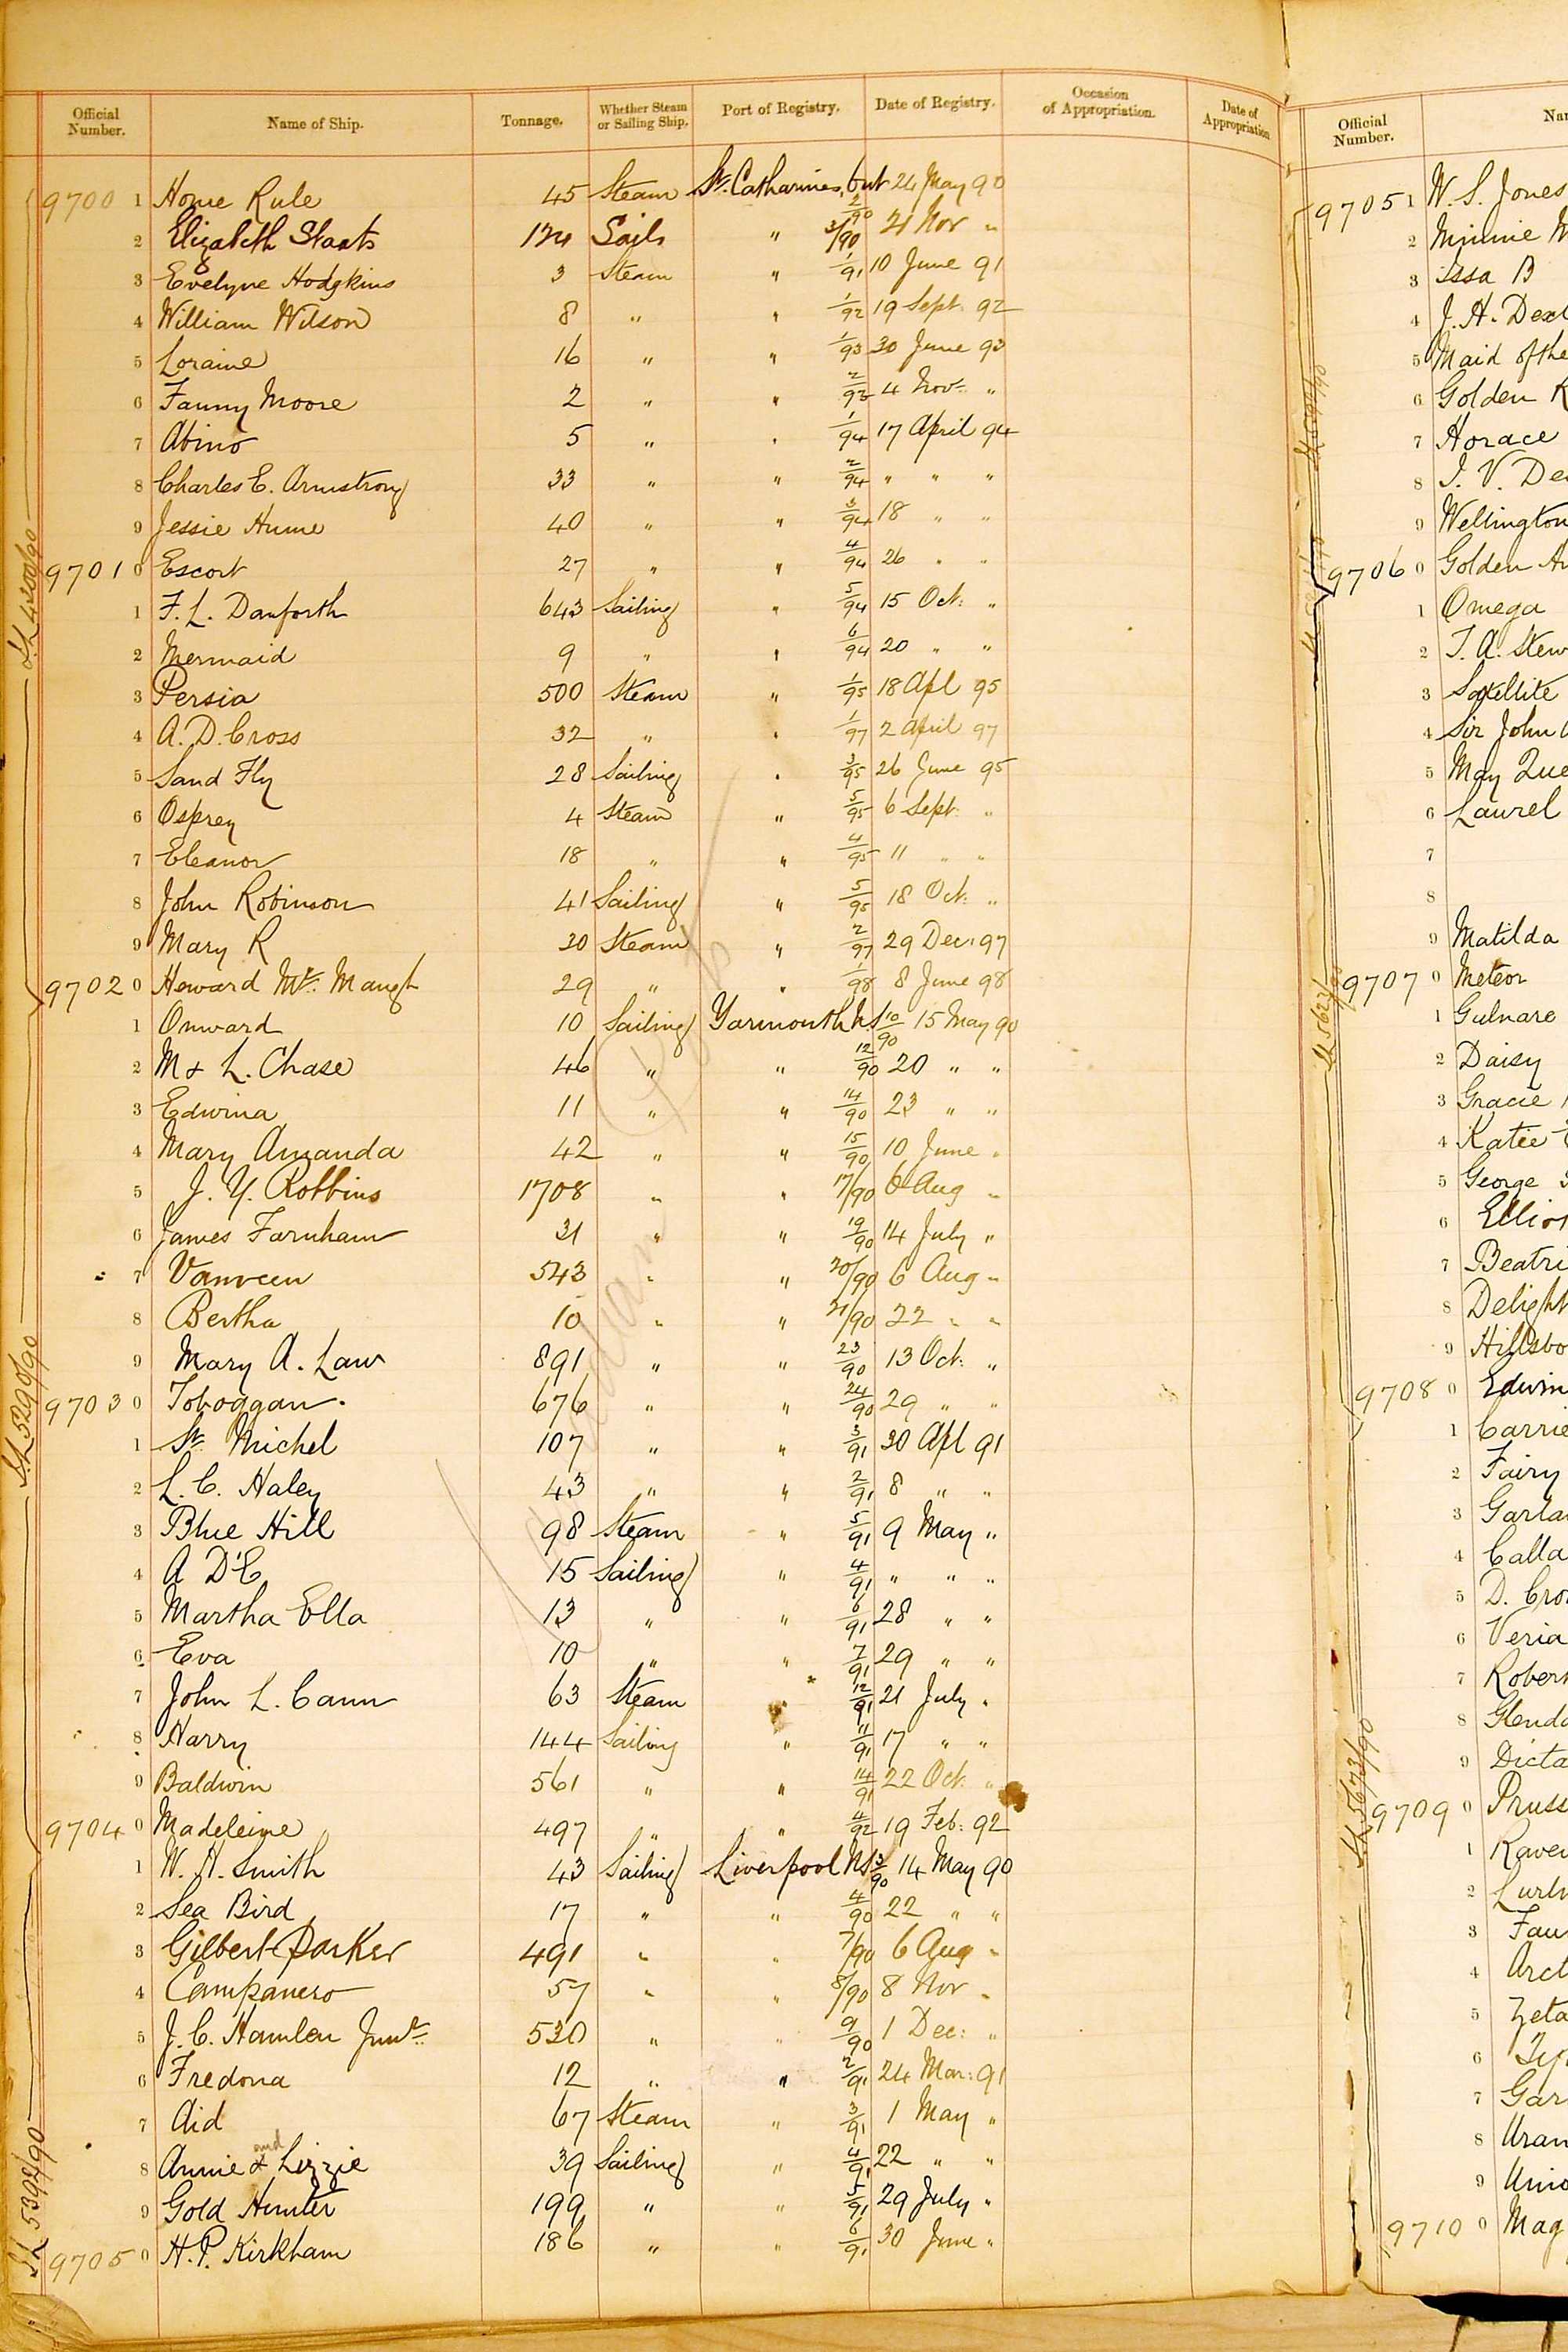 Official Number. Name of Ship. Tonnage. Whether Steam or Sailing Ship. Port of Registry. Date of Registry. Occasion of Appropriation. Date of Appropriation
9700 1 Home Rule 45 Steam St. Catharines, Ont 2/90 24 May 90
2 Elizabeth Staats 124 Sails " 3/90 21 Nov "
3 Evelyne Hodgkins 3 Steam " 1/91 10 June 91
4 William Wilson 8 " " 1/92 19 Sept. 92
5 Loraine 16 " " 1/93 30 June 93
6 Fanny Moore 2 " " 2/93 4 Nov: "
7 Abino 5 " " 1/94 17 April 94
8 Charles E. Armstrong 33 " " 2/94 " " "
9 Jessie Hume 40 " " 3/94 18 " "
9701 0 Escort 27 " " 4/94 26 " "
1 F. L. Danforth 643 Sailing " 5/94 15 Oct: "
2 Mermaid 9 " " 6/94 20 " "
3 Persia 500 Steam " 1/95 18 Apl 95
4 A. D. Cross 32 " " 1/97 2 April 97
5 Sand Fly 28 Sailing " 3/95 26 June 95
6 Osprey 4 Steam " 5/95 6 Sept: "
7 Eleanor 18 " " 4/95 11 " "
8 John Robinson 41 Sailing " 5/95 18 Oct: "
9 Mary R 30 Steam " 2/97 29 Dec: 97
9702 0 Howard Mc. Maugh 29 " " 1/98 8 June 98
1 Onward 10 Sailing Yarmouth N.S 10/90 15 May 90
2 M & L. Chase 46 " " 12/90 20 " "
3 Edwina 11 " " 14/90 23 " "
4 Mary Amanda 42 " " 15/90 10 June "
5 J. Y. Robbins 1708 " " 17/90 6 Aug "
6 James Farnham 31 " " 19/90 14 July "
7 Vanveen 543 " " 20/90 6 Aug "
8 Bertha 10 " " 21/90 22 " "
9 Mary A. Law 891 " " 23/90 13 Oct: "
9703 0 Toboggan. 676 " " 24/90 29 " "
1 St. Michel 107 " " 3/91 30 Apl 91
2 L. C. Haley 43 " " 2/91 8 " "
3 Blue Hill 98 Steam " 5/91 9 May "
4 A D'C 15 Sailing " 4/91 " " "
5 Martha Ella 13 " " 6/91 28 " "
6 Eva 10 " " 7/91 29 " "
7 John L. Cann 63 Steam " 12/91 21 July "
8 Harry 144 Sailing " 11/91 17 " "
9 Baldwin 561 " " 14/91 22 Oct: "
9704 0 Madeleine 497 " " 4/92 19 Feb: 92
1 W. H. Smith 43 Sailing Liverpool NS 3/90 14 May 90
2 Sea Bird 17 " " 4/90 22 " "
3 Gilbert Parker 491 " " 7/90 6 Aug "
4 Campanero 57 " " 8/90 8 Nov "
5 J. C. Hamlen Junr. 530 " " 9/90 1 Dec: "
6 Fredona 12 " " 2/91 24 Mar: 91
7 Aid 67 Steam " 3/91 1 May "
8 Annie & and Lizzie 39 Sailing " 4/91 22 " "
9 Gold Hunter 199 " " 5/91 29 July "
9705 0 H. P. Kirkham 186 " " 6/91 30 June "
S.L 4200/90
S.L 5290/90
S.L 5392/90
Official Number. Nam
9705 1 W. S. Jones
2 Minnie M
3 Issa B
4 J. H. Dext
5 Maid of the
6 Golden R
7 Horace
8 J. V. De
9 Wellington
9706 0 Golden
1 Omega
2 T. A. Stew
3 Satellite
4 Sir John
5 May Que
6 Laurel
7
8
9 Matilda
9707 0 Meteor
1 Gulnare
2 Daisy
3 Gracie
4 Katie
5 George
6 Elliot
7 Beatri
8 Delight
9 Hillsbo
9708 0 Edwin
1 Carrie
2 Fairy
3 Garla
4 Calla
5 D. Cro
6 Veria
7 Rober
8 Glenda
9 Dicta
9709 0 Pruss
1 Raven
2 Lurli
3 Fau
4 Arct
5 Zeta
6
7 Gar
8 Uran
9 Unio
9710 0 Mag
S.L 5623/90
S.L 5673/90